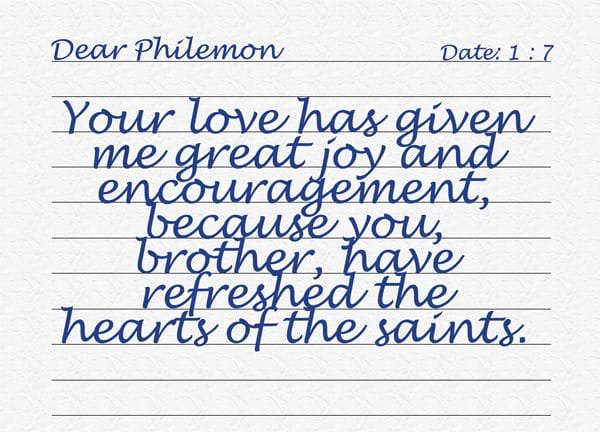 Dear Philemon Date: 1 : 7
Your love has given
me great joy and
encouragement,
because you,
brother, have
refreshed the
hearts of the saints.